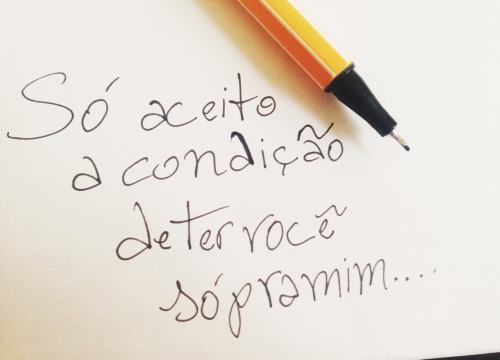 Só aceito
a condição
de ter você
só pra mim....